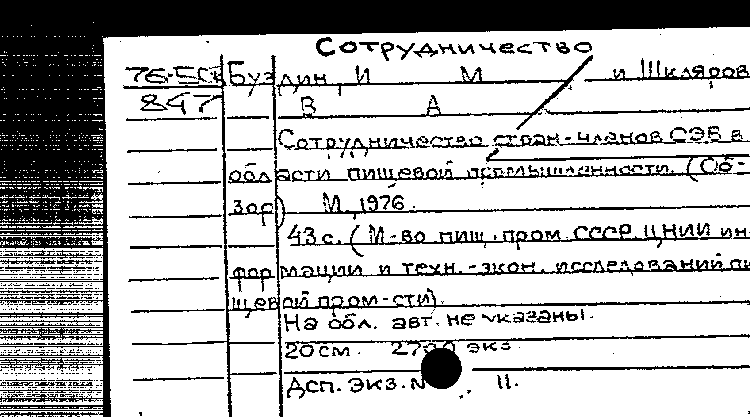 Сотрудничество
76-50
Буздин, И М и Шкляров
847 В А
Сотрудничество стран-членов СЭВ в
области пищевой промышленности. (Об-
зор) М., 1976.
43 с. (М-во пищ. пром. СССР. ЦНИИ ин-
формации и техн.-экон. исследований пи-
щевой пром-сти).
На обл. авт. не указаны.
20 см. экз.
Дсп. Экз. N 11.